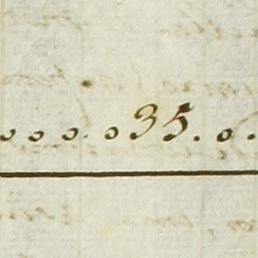 o o o. o 35. o.